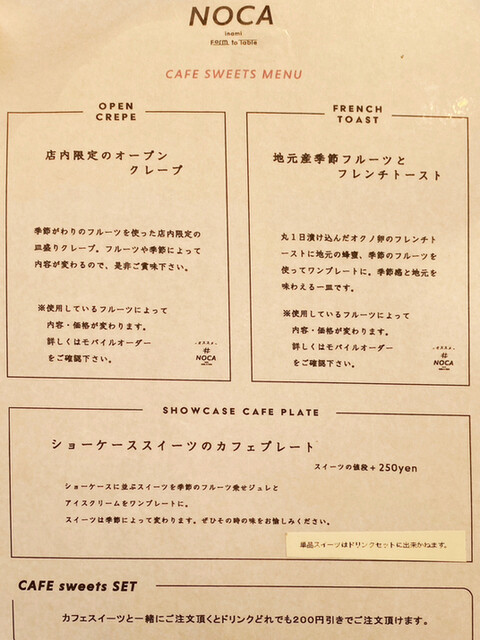 NOCA
inami
Farm to Table
CAFE SWEETS MENU
OPEN
CREPE
店内限定のオープン
クレープ
季節がわりのフルーツを使った店内限定の
皿盛りクレープ。フルーツや季節によって
内容が変わるので、是非ご賞味下さい。
※使用しているフルーツによって
内容・価格が変わります。
詳しくはモバイルオーダー
をご確認下さい。
-オススメ-
#
NOCA
FRENCH
TOAST
地元産季節フルーツと
フレンチトースト
丸1日漬け込んだオクノ卵のフレンチト
ーストに地元の蜂蜜、季節のフルーツを
使ってワンプレートに。季節感と地元を
味わえる一皿です。
※使用しているフルーツによって
内容・価格が変わります。
詳しくはモバイルオーダー
をご確認下さい。
-オススメ-
#
NOCA
SHOWCASE CAFE PLATE
ショーケーススイーツのカフェプレート
スイーツの値段+250yen
ショーケースに並ぶスイーツを季節のフルーツ乗せジュレと
アイスクリームをワンプレートに。
スイーツは季節によって変わります。ぜひその時の味をお愉しみください。
単品スイーツはドリンクセットに出来かねます。
CAFE sweets SET
カフェスイーツと一緒にご注文頂くとドリンクどれでも200円引きでご注文頂けます。